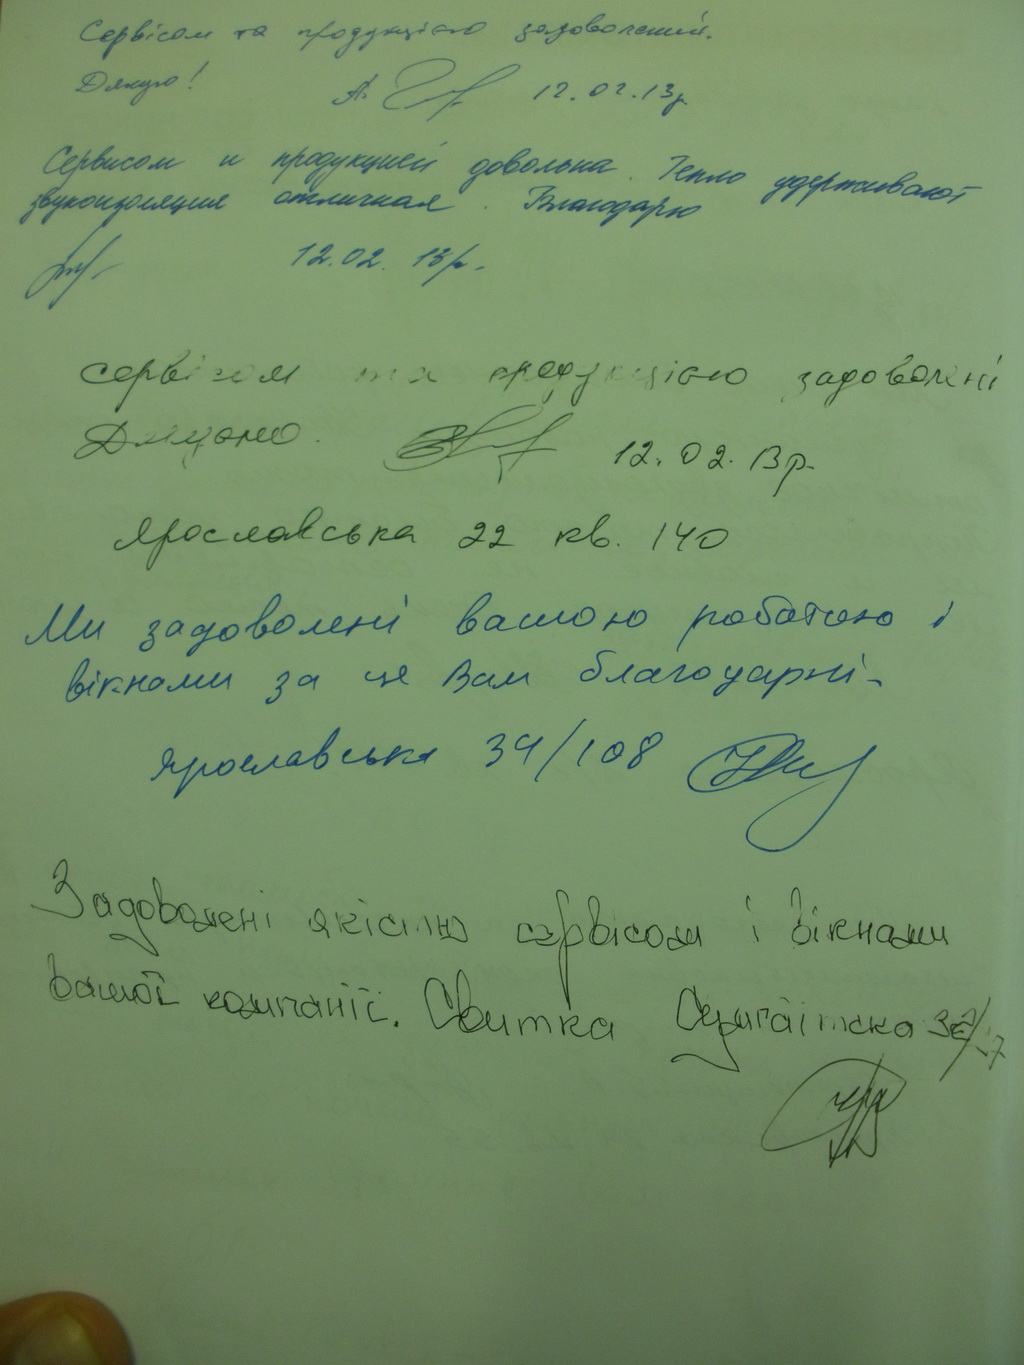 Сервісом та продукцією задоволений.
Дякую!
А. 12.02.13р
Сервисом и продукцией довольна. Тепло удерживают
звукоизоляция отличная. Благодарю
12.02. 13р.
Сервісом та продукцією задоволені
Дякуємо.
12.02.13р.
Ярославська 22 кв. 140
Ми задоволені вашою роботою і
вікнами за це Вам благодарні.
Ярославська 34/108
Задоволені якістю сервісом і вікнами
вашої компанії. Свитка